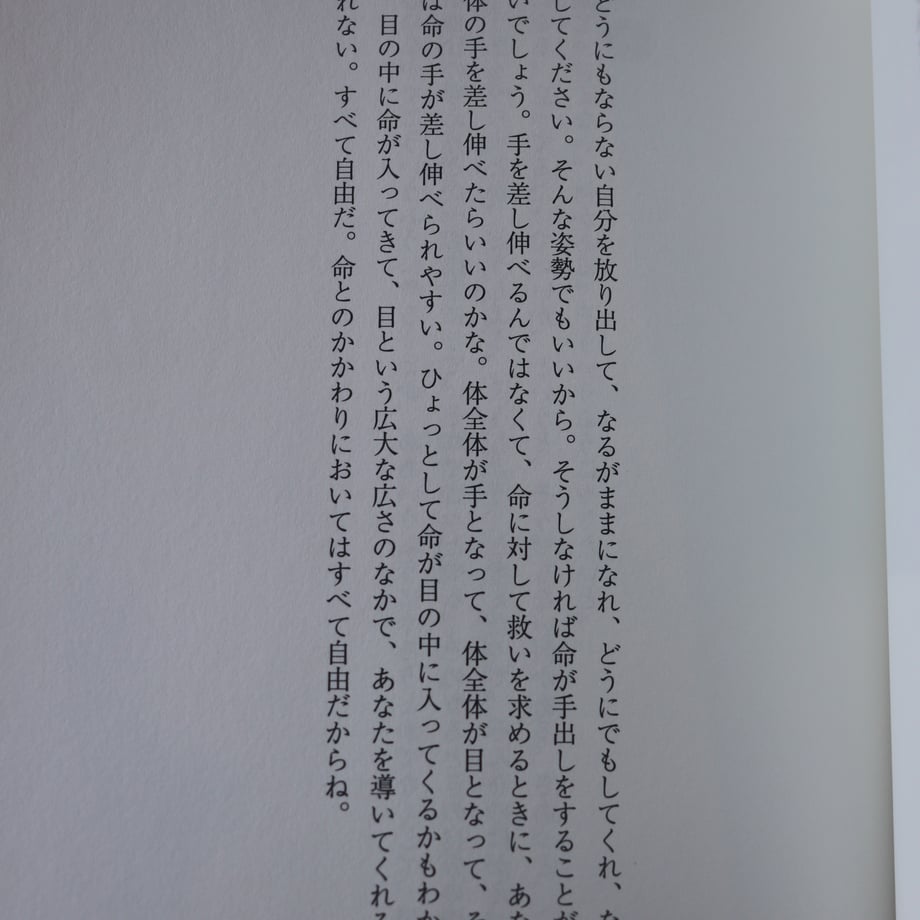 どうにもならない自分を放り出して、なるがままになれ、どうにでもしてくれ、な
してください。そんな姿勢でもいいから。そうしなければ命が手出しをすることが
いでしょう。手を差し伸べるんではなくて、命に対して救いを求めるときに、あな
体の手を差し伸べたらいいのかな。体全体が手となって、体全体が目となって、そ
は命の手が差し伸べられやすい。ひょっとして命が目の中に入ってくるかもわか
目の中に命が入ってきて、目という広大な広さのなかで、あなたを導いてくれる
れない。すべて自由だ。命とのかかわりにおいてはすべて自由だからね。